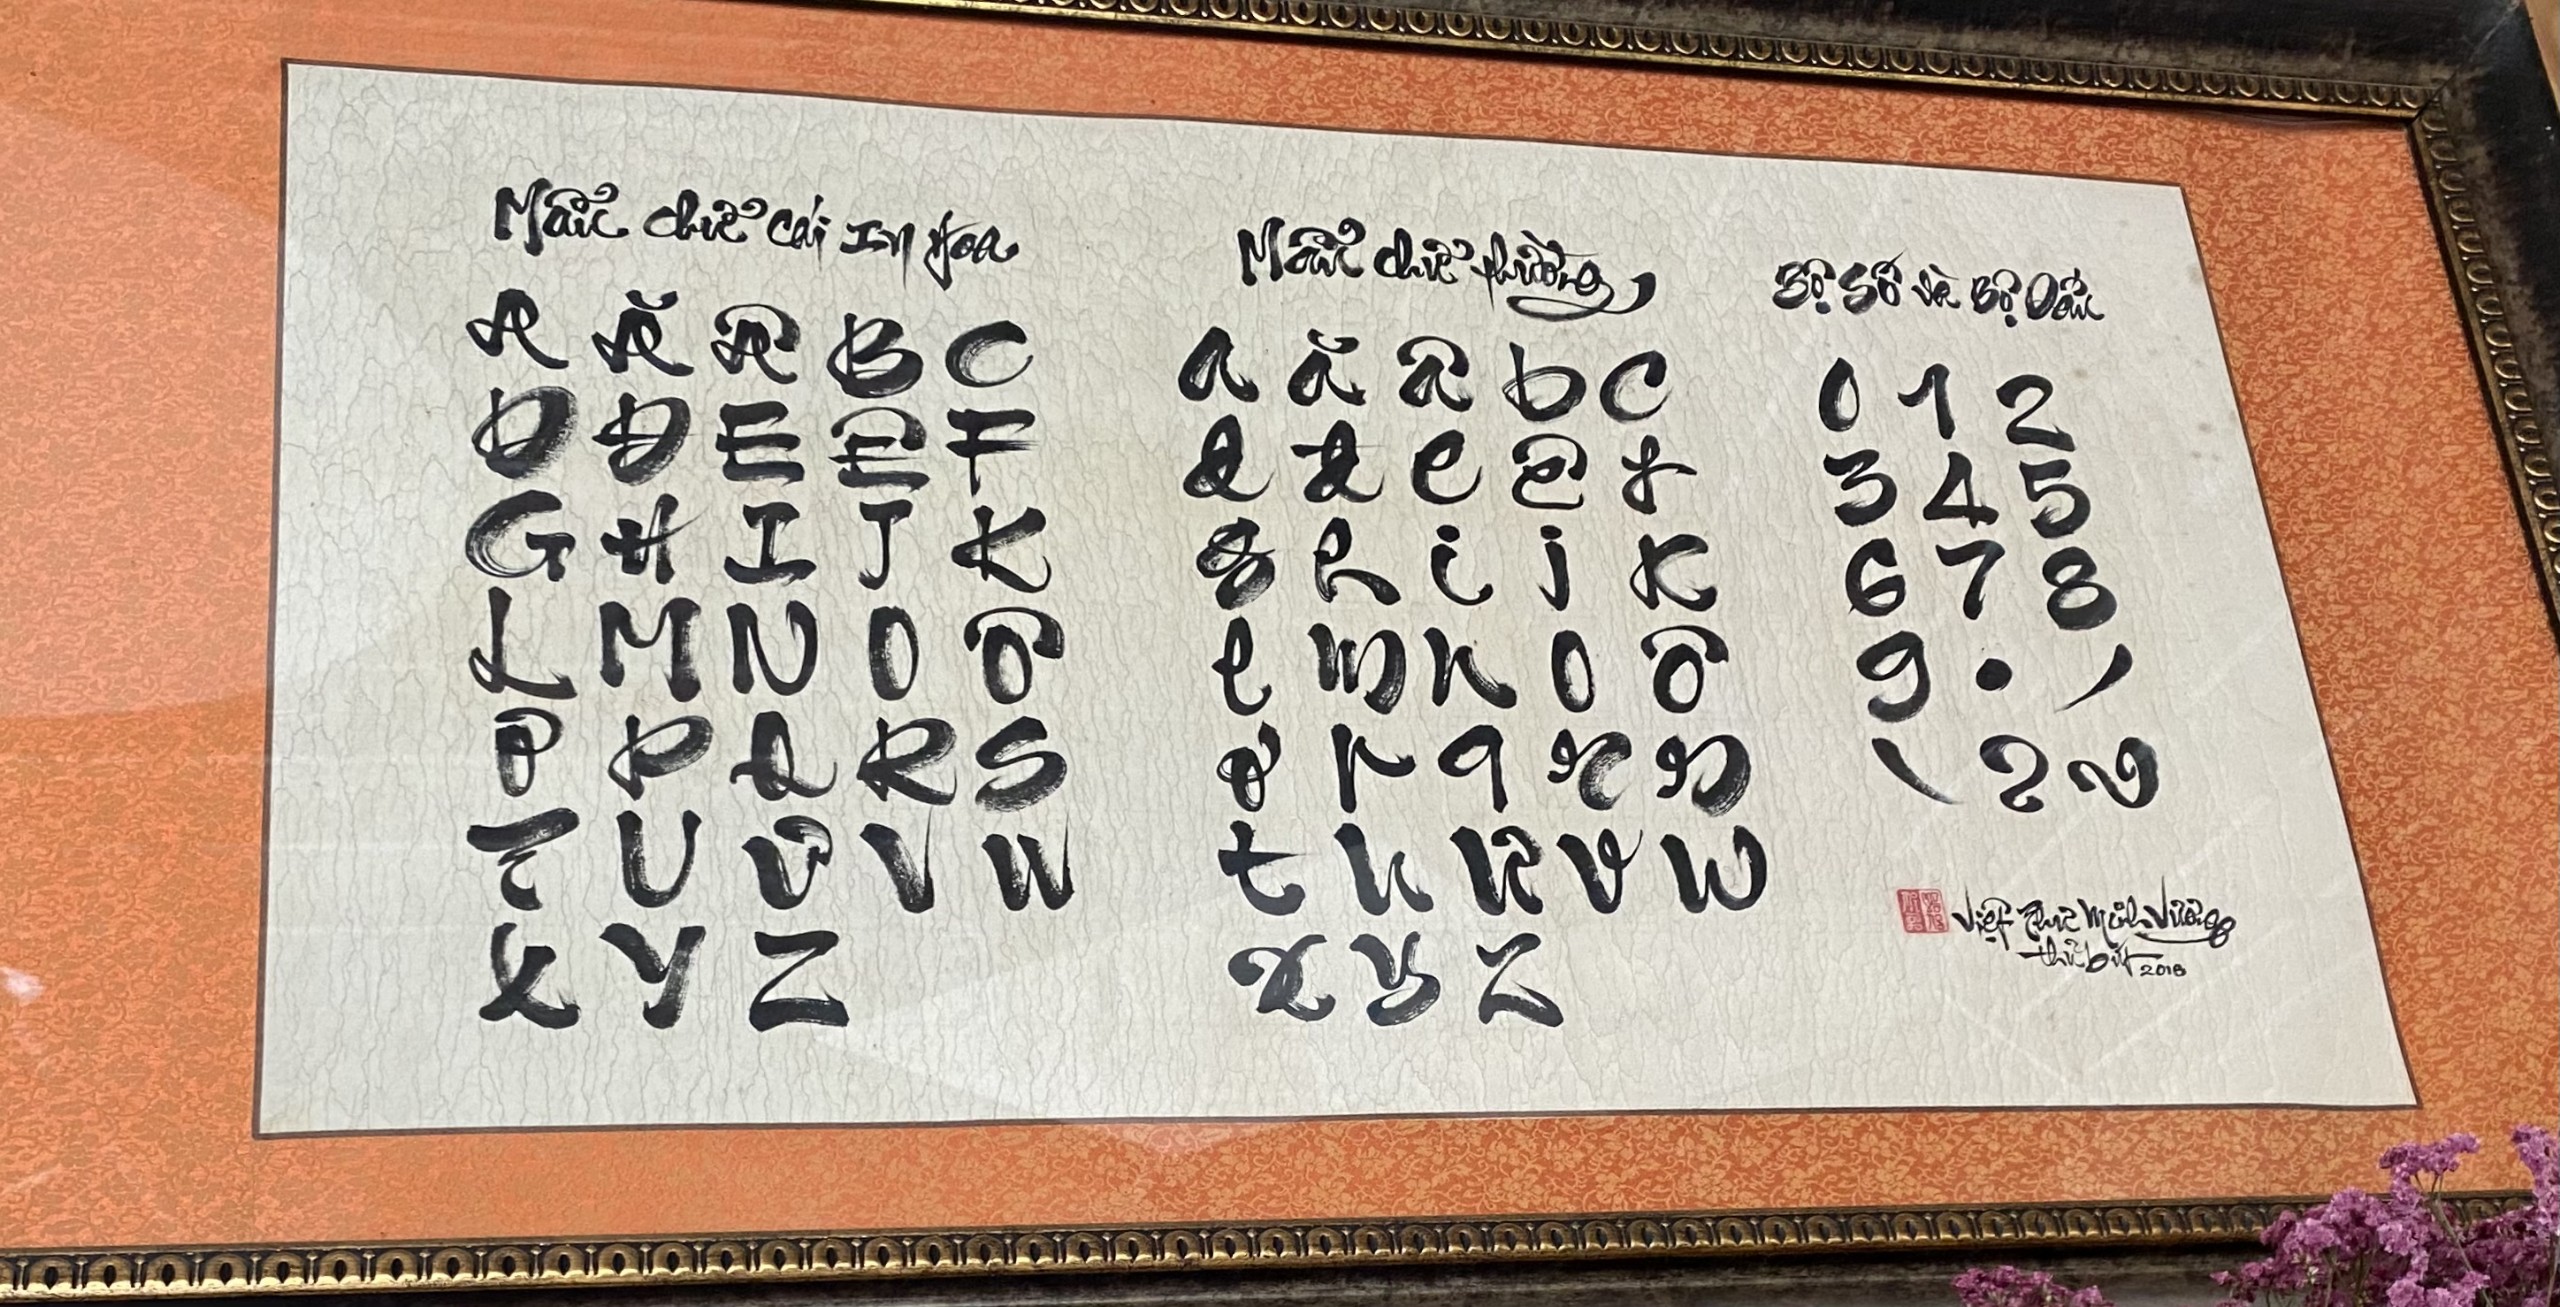 Mẫu chữ cái In Hoa
A Ă Â B C
D Đ E Ê F
G H I J K
L M N O Ô
Ơ P Q R S
T U Ư V W
X Y Z
Mẫu chữ thường
a ă â b c
d đ e ê f
g h i j k
l m n o ô
ơ p q r s
t u ư v w
x y z
Bộ Số và Bộ Dấu
0 1 2
3 4 5
6 7 8
9 . /
\ ? ~
Việt Thư Minh Vương
thủ bút 2018